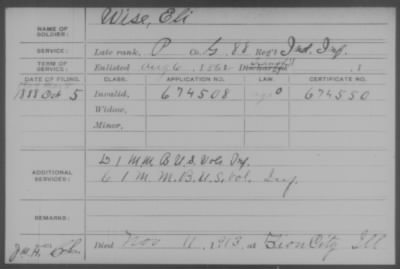 NAME OF SOLDIER: Wise, Eli
SERVICE: Late rank, P Co. G, 88 Reg't Ind. Inf.
TERM OF SERVICE: Enlisted Aug 6, 1862 Discharged, 1
DATE OF FILING. CLASS. APPLICATION NO. LAW. CERTIFICATE NO.
1888 Oct 5 Invalid, 674508 674550
Widow,
Minor,
ADDITIONAL SERVICES: D 1 M M B U.S. Vols Inf.
C 1 M. M. B. U.S. Vol. Inf.
REMARKS:
Died Nov 11, 1913, at Zion City Ill